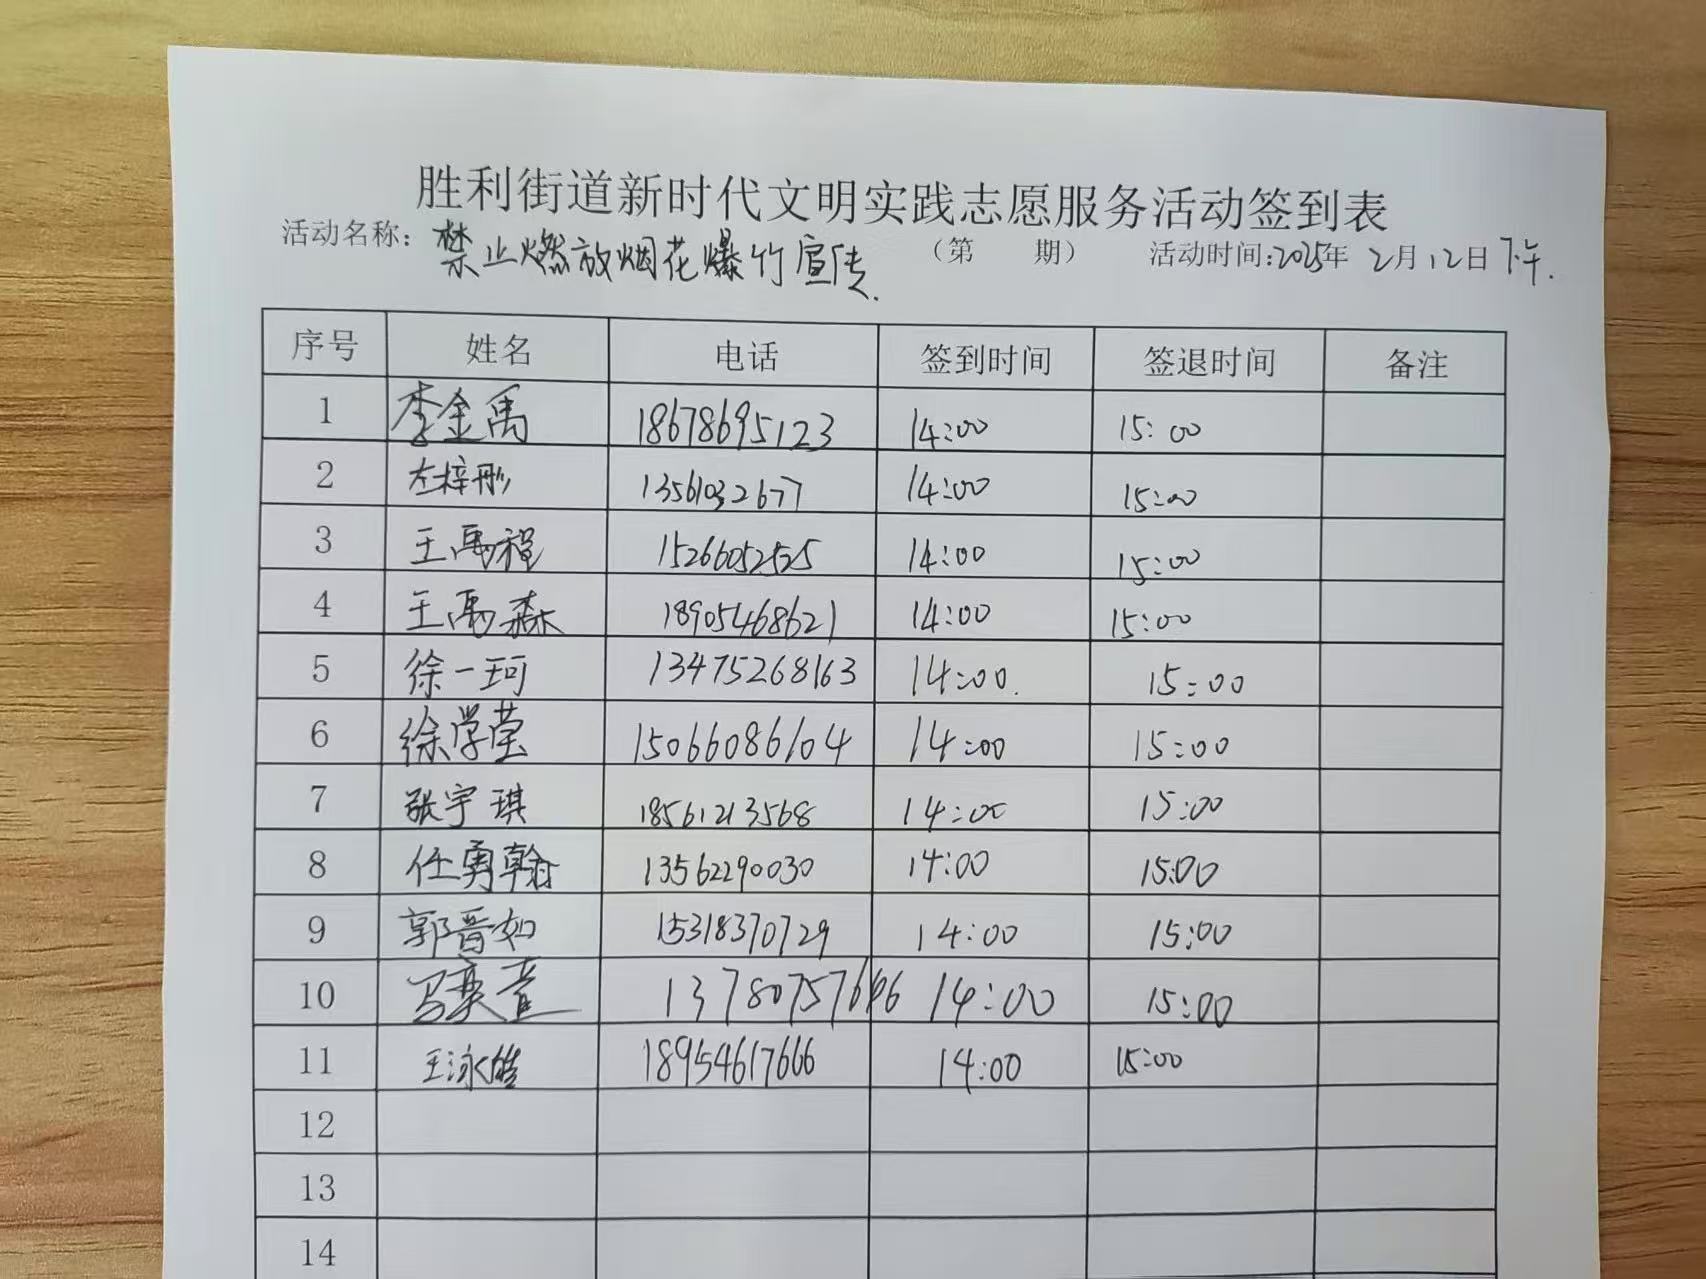 胜利街道新时代文明实践志愿服务活动签到表
活动名称：禁止燃放烟花爆竹宣传. （第 期） 活动时间:2025年 2月12日 下午.
序号 姓名 电话 签到时间 签退时间 备注
1 李金禹 18678695123 14:00 15:00
2 左梓彤 13561032677 14:00 15:00
3 王禹程 15266052525 14:00 15:00
4 王禹森 18905468621 14:00 15:00
5 徐一珂 13475268163 14:00. 15:00
6 徐学莹 15066086104 14:00 15:00
7 张宇琪 18561213568 14:00 15:00
8 任勇翰 13562290030 14:00 15:00
9 郭晋如 15318370729 14:00 15:00
10 14:00 15:00
11 王泳皓 18954617666 14:00 15:00
12
13
14